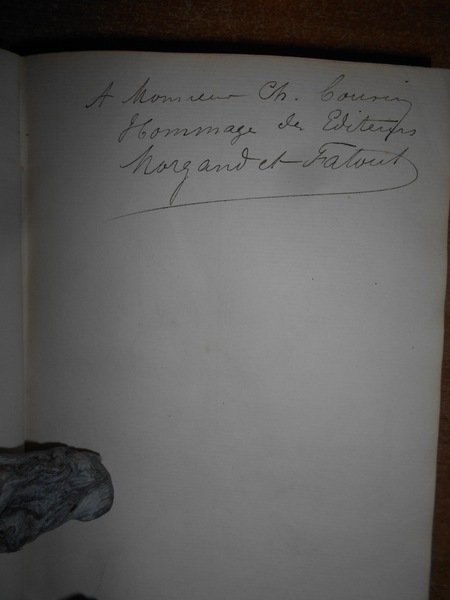 A Monsieur Ch. Cousin
Hommage des Editeurs
Morgand et Fatout